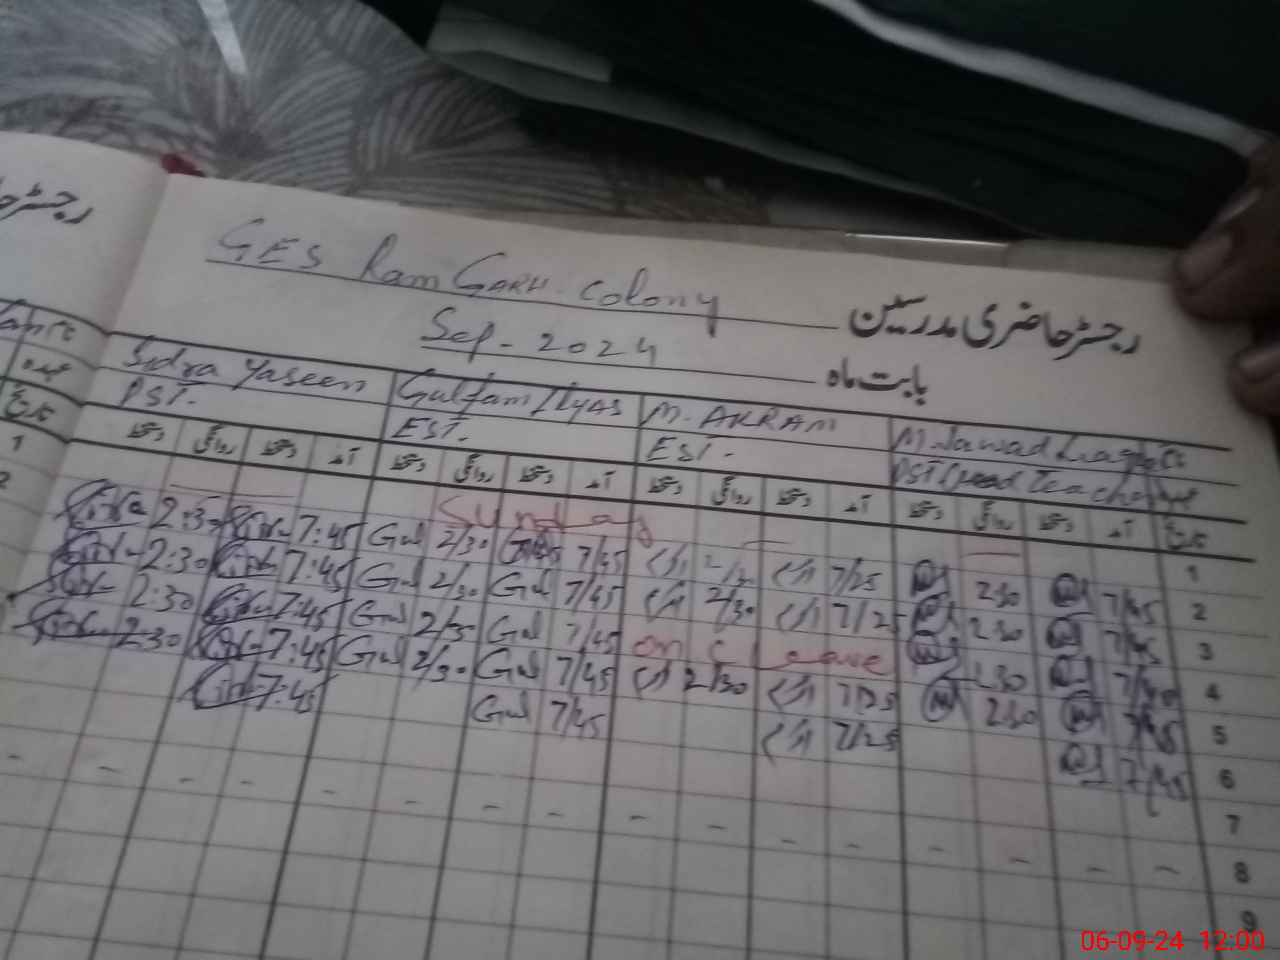 رجسٹر حا
GES Ram GARH. Colony
رجسٹر حاضری مدرسین
Sep - 2024
بابت ماہ
Sidra Yaseen Gulfam Ilyas M. AKRAM M. Jawad
PST. EST. EST. PST (Head Teacher
عہدہ
تاریخ
دستخط روانگی دستخط آمد دستخط روانگی دستخط آمد دستخط روانگی دستخط آمد دستخط روانگی دستخط آمد تاریخ
Sunday 1
2:30 7:45 Gul 2/30 7/45 2/30 7/25 2:30 7/45 2
2:30 7:45 Gul 2/30 Gul 7/45 2/30 7/25 2:30 7/45 3
2:30 7:45 Gul 2/30 Gul 7/45 on C leave 2:30 7/45 4
2:30 7:45 Gul 2/30 Gul 7/45 2/30 7/25 2:30 7/45 5
7:45 Gul 7/45 7/25 7/45 6
7
8
9
1
2
06-09-24 12:00